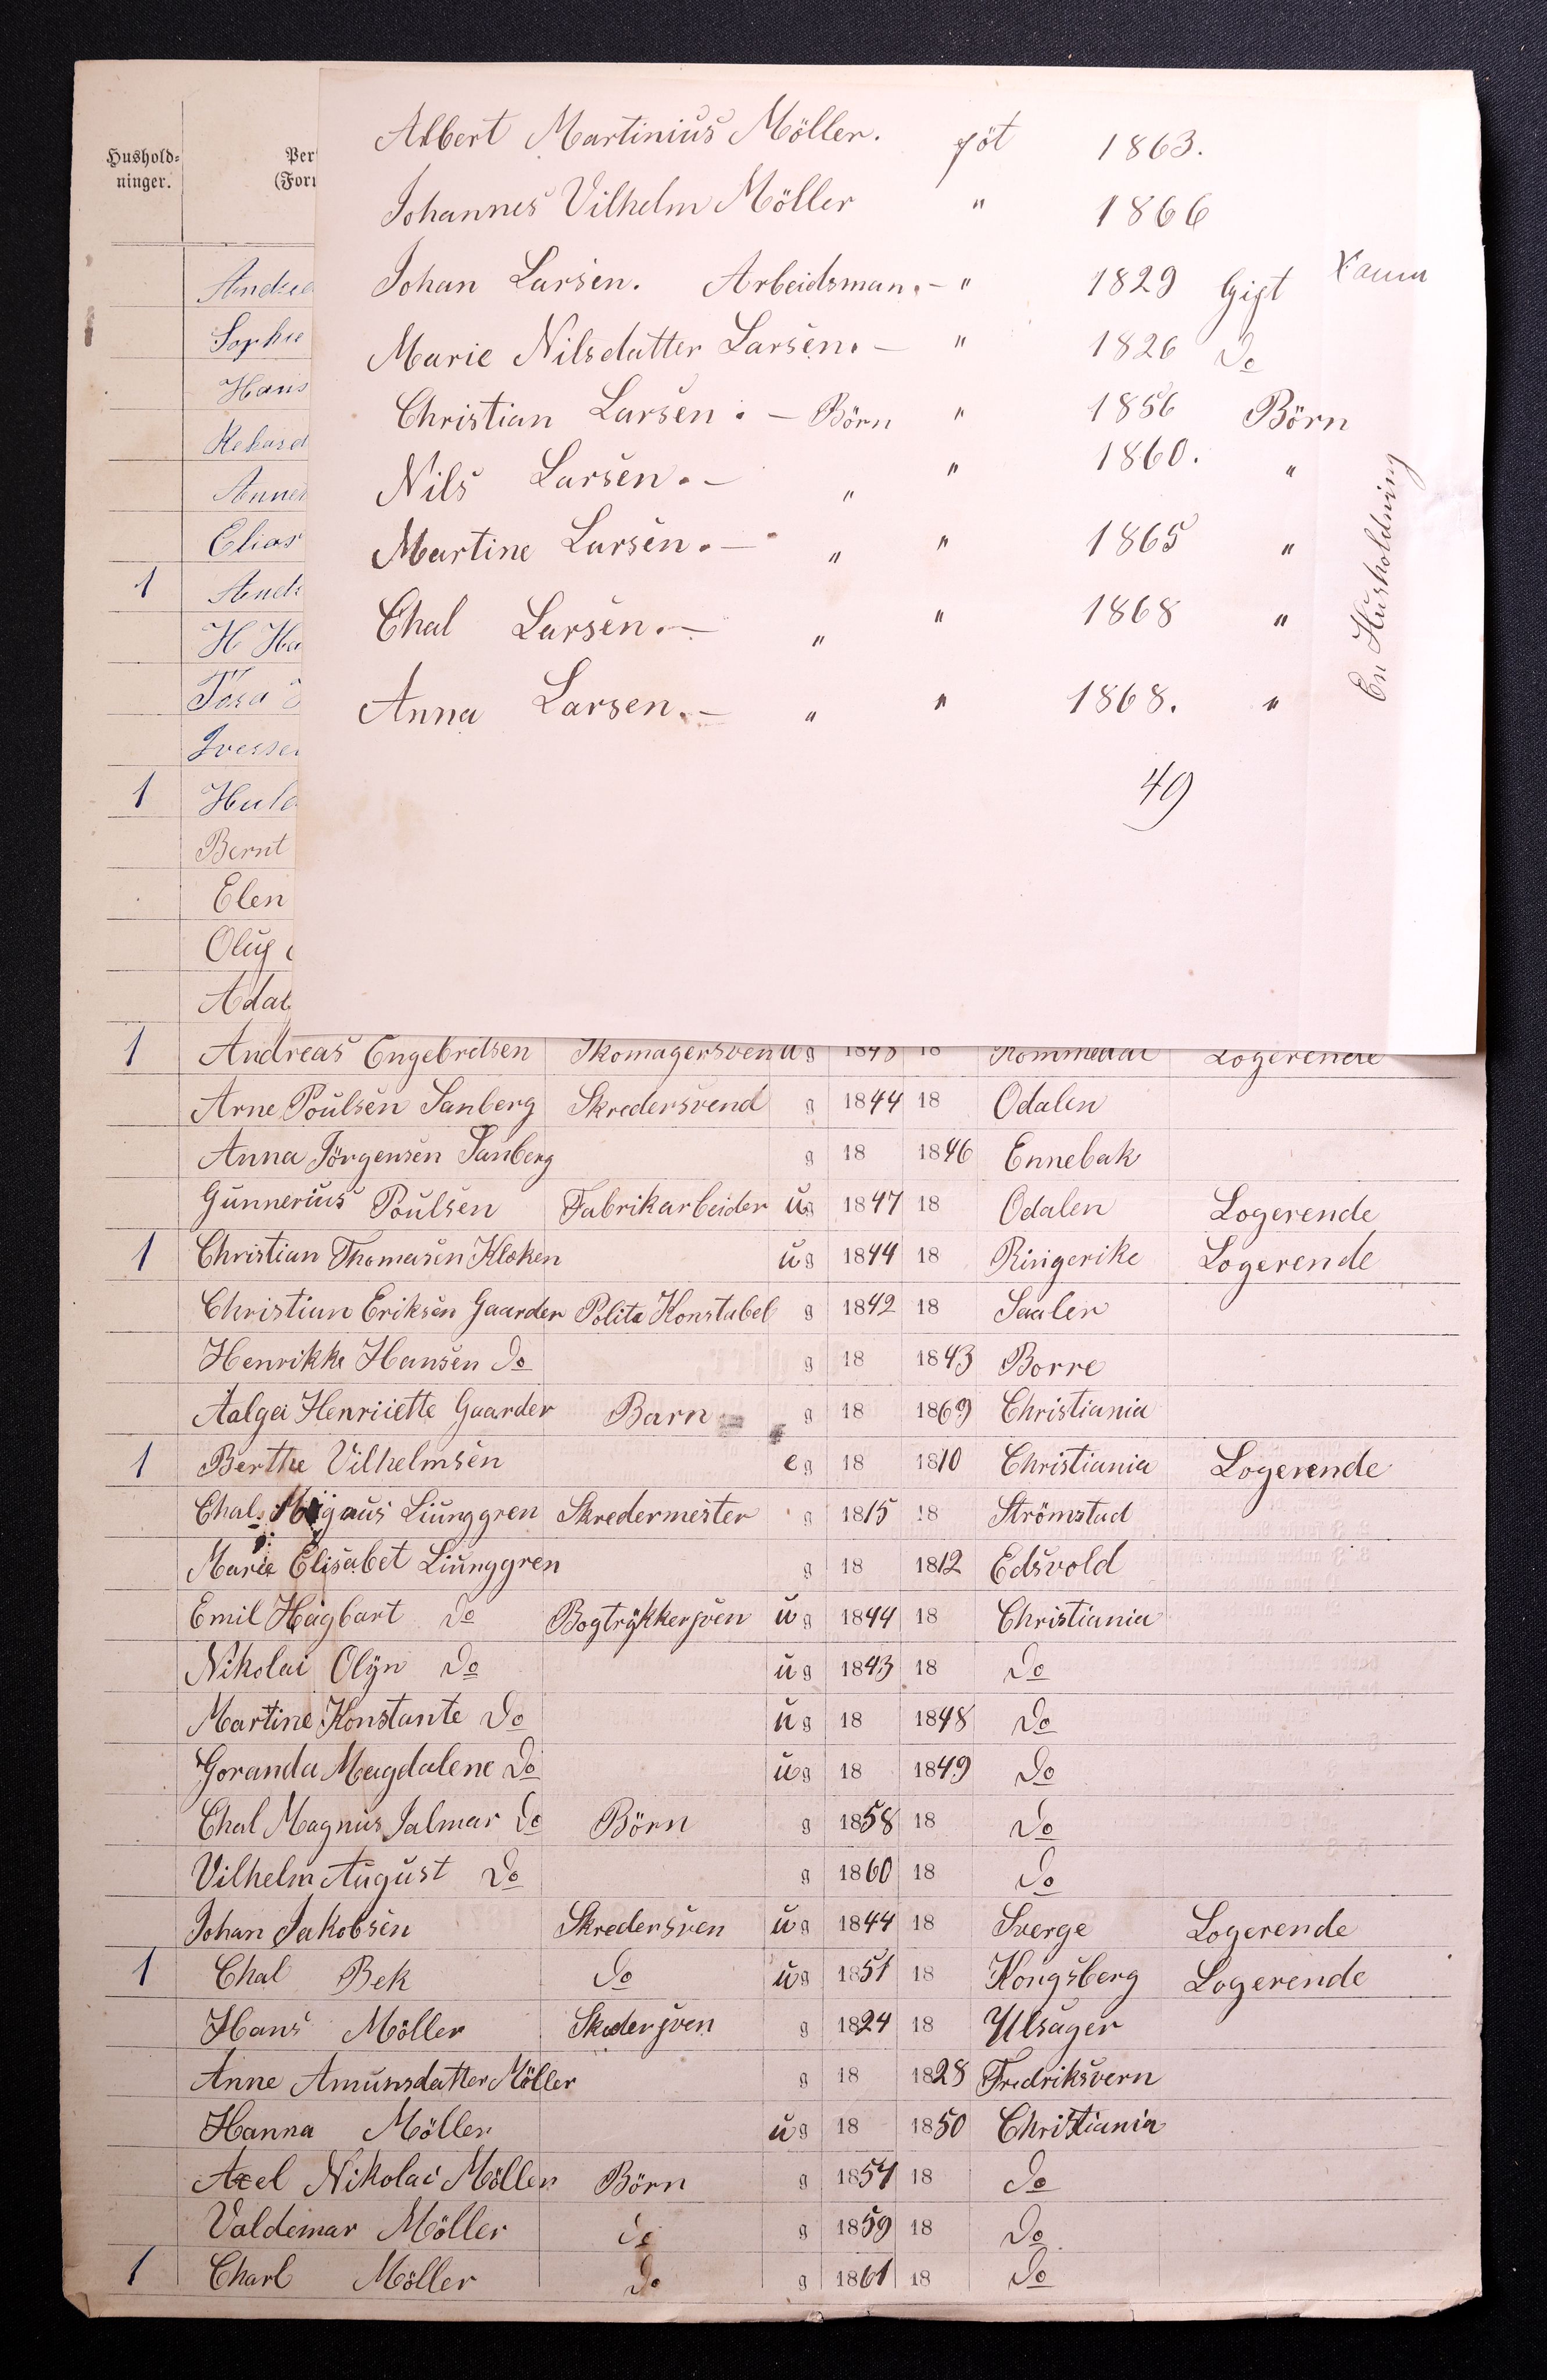 Albert Martinius Möller. föt 1863.
Johannes Vilhelm Möller " 1866
Johan Larsen. Arbeidsman. - " 1829 Gift
Marie Nilsdatter Larsen. - " 1826 Do
Christian Larsen. - Börn " 1856 Börn
Nils Larsen. - " " 1860. "
Martine Larsen. - " " 1865 "
Chal Larsen. - " " 1868 "
Anna Larsen. - " " 1868. "
En Husholdning
49
Hushold-
ninger.
Per
(For
Andrea
Sophie
Hans
Elias
1
H Ha
1
Bernt
Elen
Oluf
1 Andreas Engebretsen Skomagersvend ug 1848 18 Rommedal Logerende
Arne Poulsen Sanberg Skredersvend g 1844 18 Odalen
Anna Jörgensen Sanberg g 18 1846 Ennebak
Gunnerius Poulsen Fabrikarbeider ug 1847 18 Odalen Logerende
1 Christian Thomasen Kloken ug 1844 18 Ringerike Logerende
Christian Eriksen Gaarder Politi Konstabel g 1842 18 Saalen
Henrikke Hansen Do g 18 1843 Borre
Aalga Henriiette Gaarder Barn g 18 1869 Christiania
1 Berthe Vilhelmsen eg 18 1810 Christiania Logerende
Chals Liunggren Skredermester g 1815 18 Strömstad
Marie Elisabet Liunggren g 18 1812 Edsvold
Emil Hagbart Do Bogtrykkersven ug 1844 18 Christiania
Nikolai Olyn Do ug 1843 18 Do
Martine Konstante Do ug 18 1848 Do
Goranda Magdalene Do ug 18 1849 Do
Chal Magnus Jalmar Do Börn g 1858 18 Do
Vilhelm August Do g 1860 18 Do
Johan Jakobsen Skredersven ug 1844 18 Sverge Logerende
1 Chal Bek Do ug 1851 18 Kongsberg Logerende
Hans Möller Skedersven g 1824 18 Ulsager
Anne Amunsdatter Möller g 18 1828 Fredriksvern
Hanna Möller ug 18 1850 Christiania
Axel Nikolai Möller Börn g 1857 18 Do
Valdemar Möller Do g 1859 18 Do
1 Charl Möller Do g 1861 18 Do